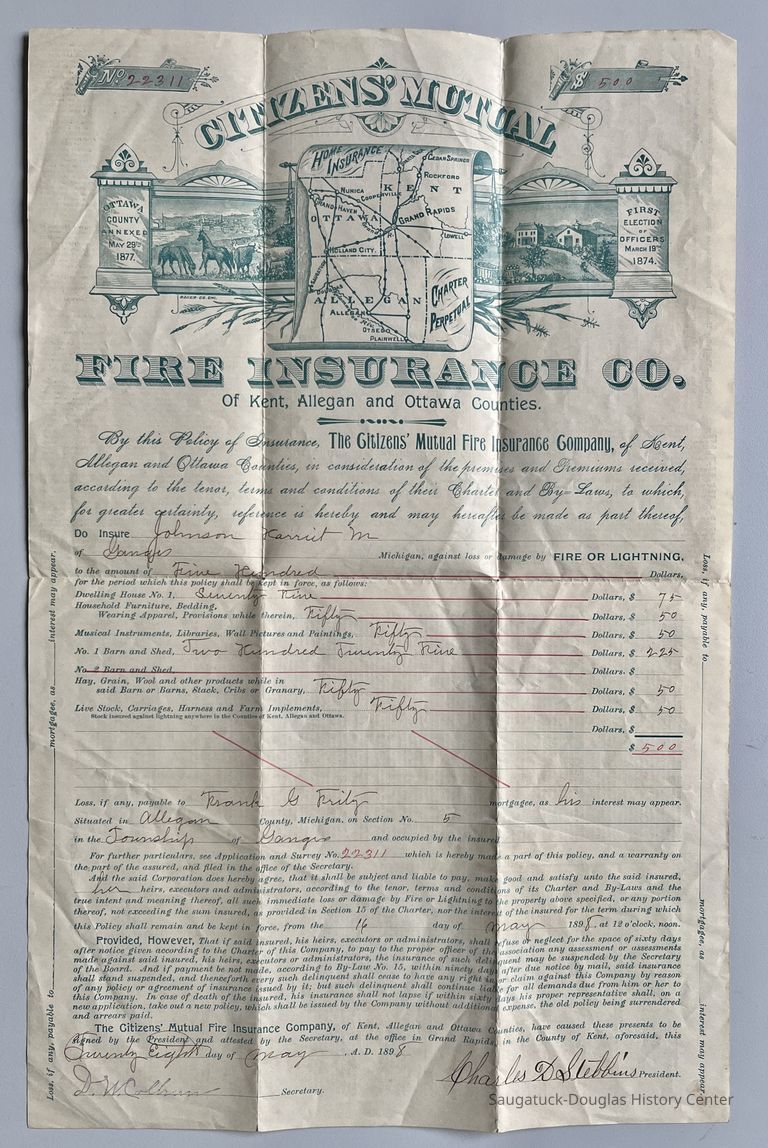 No 22311
$ 500
CITIZENS' MUTUAL
HOME INSURANCE
CEDAR SPRINGS
ROCKFORD
KENT
NUNICA
COOPERSVILLE
GRAND HAVEN
OTTAWA
GRAND RAPIDS
LOWELL
HOLLAND CITY.
ALLEGAN
ALLEGAN
OTSEGO
PLAINWELL
CHARTER PERPETUAL
OTTAWA
COUNTY
ANNEXED
MAY 29TH
1877.
FIRST
ELECTION
OF
OFFICERS
MARCH 19TH
1874.
FIRE INSURANCE CO.
Of Kent, Allegan and Ottawa Counties.
By this Policy of Insurance, The Citizens' Mutual Fire Insurance Company, of Kent,
Allegan and Ottawa Counties, in consideration of the premises and Premiums received,
according to the tenor, terms and conditions of their Charter and By-Laws, to which,
for greater certainty, reference is hereby and may hereafter be made as part thereof,
Do Insure Johnson Harriet M
of Ganges Michigan, against loss or damage by FIRE OR LIGHTNING,
to the amount of Five Hundred Dollars,
for the period which this policy shall be kept in force, as follows:
Dwelling House No. 1, Seventy Five Dollars, $ 75
Household Furniture, Bedding,
Wearing Apparel, Provisions while therein, Fifty Dollars, $ 50
Musical Instruments, Libraries, Wall Pictures and Paintings, Fifty Dollars, $ 50
No. 1 Barn and Shed, Two Hundred Twenty Five Dollars, $ 225
No. 2 Barn and Shed, Dollars, $
Hay, Grain, Wool and other products while in
said Barn or Barns, Stack, Cribs or Granary, Fifty Dollars, $ 50
Live Stock, Carriages, Harness and Farm Implements, Fifty Dollars, $ 50
Stock insured against lightning anywhere in the Counties of Kent, Allegan and Ottawa.
Dollars, $
$ 500
Loss, if any, payable to Frank G Fritz mortgagee, as his interest may appear.
Situated in Allegan County, Michigan, on Section No. 5
in the Township of Ganges and occupied by the insured
For further particulars, see Application and Survey No. 22311 which is hereby made a part of this policy, and a warranty on
the part of the assured, and filed in the office of the Secretary.
And the said Corporation does hereby agree, that it shall be subject and liable to pay, make good and satisfy unto the said insured,
her heirs, executors and administrators, according to the tenor, terms and conditions of its Charter and By-Laws and the
true intent and meaning thereof, all such immediate loss or damage by Fire or Lightning to the property above specified, or any portion
thereof, not exceeding the sum insured, as provided in Section 15 of the Charter, nor the interest of the insured for the term during which
this Policy shall remain and be kept in force, from the 16 day of May 1898, at 12 o'clock, noon.
Provided, However, That if said insured, his heirs, executors or administrators, shall refuse or neglect for the space of sixty days
after notice given according to the Charter of this Company, to pay to the proper officer of the association any assessment or assessments
made against said insured, his heirs, executors or administrators, the insurance of such delinquent may be suspended by the Secretary
of the Board. And if payment be not made, according to By-Law No. 15, within ninety days after due notice by mail, said insurance
shall stand suspended, and thenceforth every such delinquent shall cease to have any right or claim against this Company by reason
of any policy or agreement of insurance issued by it; but such delinquent shall continue liable for all demands due from him or her to
this Company. In case of death of the insured, his insurance shall not lapse if within sixty days his proper representative shall, on a
new application, take out a new policy, which shall be issued by the Company without additional expense, the old policy being surrendered
and arrears paid.
The Citizens' Mutual Fire Insurance Company, of Kent, Allegan and Ottawa Counties, have caused these presents to be
signed by the President and attested by the Secretary, at the office in Grand Rapids, in the County of Kent, aforesaid, this
Twenty Eight day of May, A. D. 1898
Charles D Stebbins President.
D. W. Calhoun Secretary.
Loss, if any, payable to mortgagee, as interest may appear.
Loss, if any, payable to mortgagee, as interest may appear.
Saugatuck-Douglas History Center